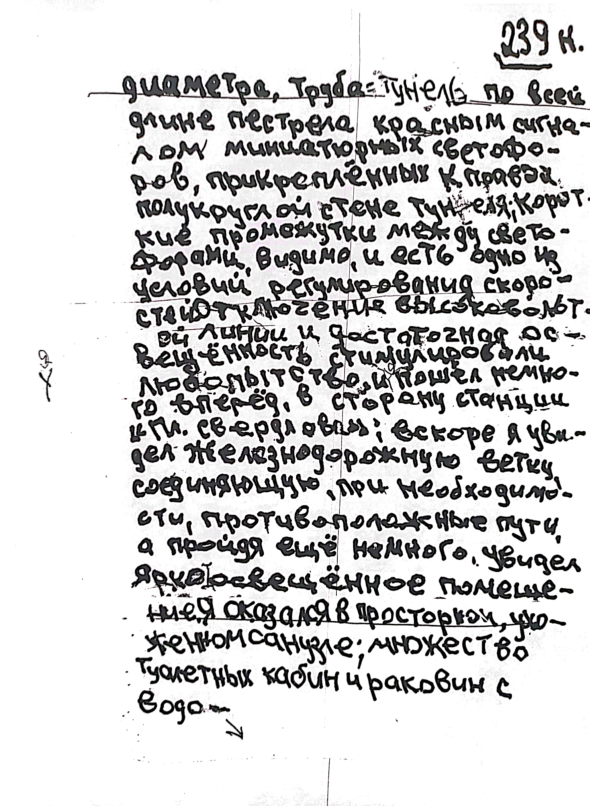 239 н.
диаметра, труба=тунель по всей
длине пестрела красным сигна-
лом миниатюрных светофо-
ров, прикреплённых к правой
полукруглой стене тунеля; корот-
кие промежутки между свето-
форами, видимо, и есть одно из
условий регулирования скоро-
стей. Отключение высоковольт.
ой линии и достаточная ос-
вещённость стимулировали
любопытство, и пошёл немно-
го вперёд, в сторону станции
"Пл. свердлова"; вскоре я уви-
дел железнодорожную ветку,
соединяющую, при необходимо-
сти, противоположные пути,
а пройдя ещё немного, увидел
ярко освещённое помеще-
ние. Я оказался в просторном, ухо-
женном санузле; множество
туалетных кабин и раковин с
водо-